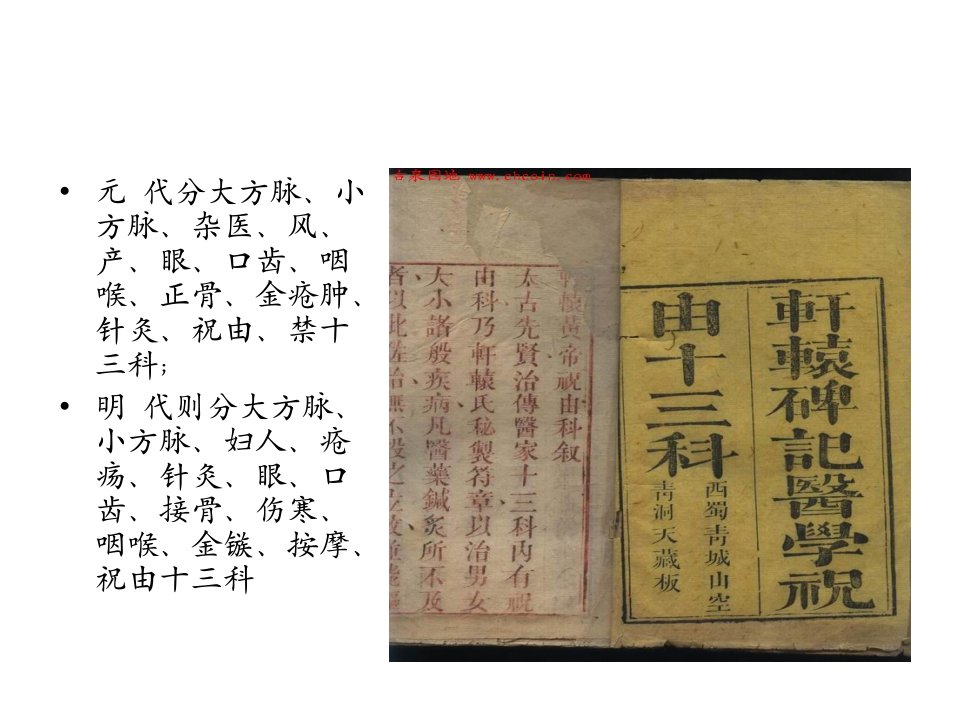 • 元 代分大方脉、小
方脉、杂医、风、
产、眼、口齿、咽
喉、正骨、金疮肿、
针灸、祝由、禁十
三科;
• 明 代则分大方脉、
小方脉、妇人、疮
疡、针灸、眼、口
齿、接骨、伤寒、
咽喉、金镞、按摩、
祝由十三科
www.chcoin.com
軒轅碑記醫學祝
由十三科
西蜀青城山空
青洞天藏板
軒轅黃帝祝由科叙
太古先賢治傳醫家十三科內有祝
由科乃軒轅氏秘製符章以治男女
大小諸般疾病凡醫藥鍼炙所不及
者以此